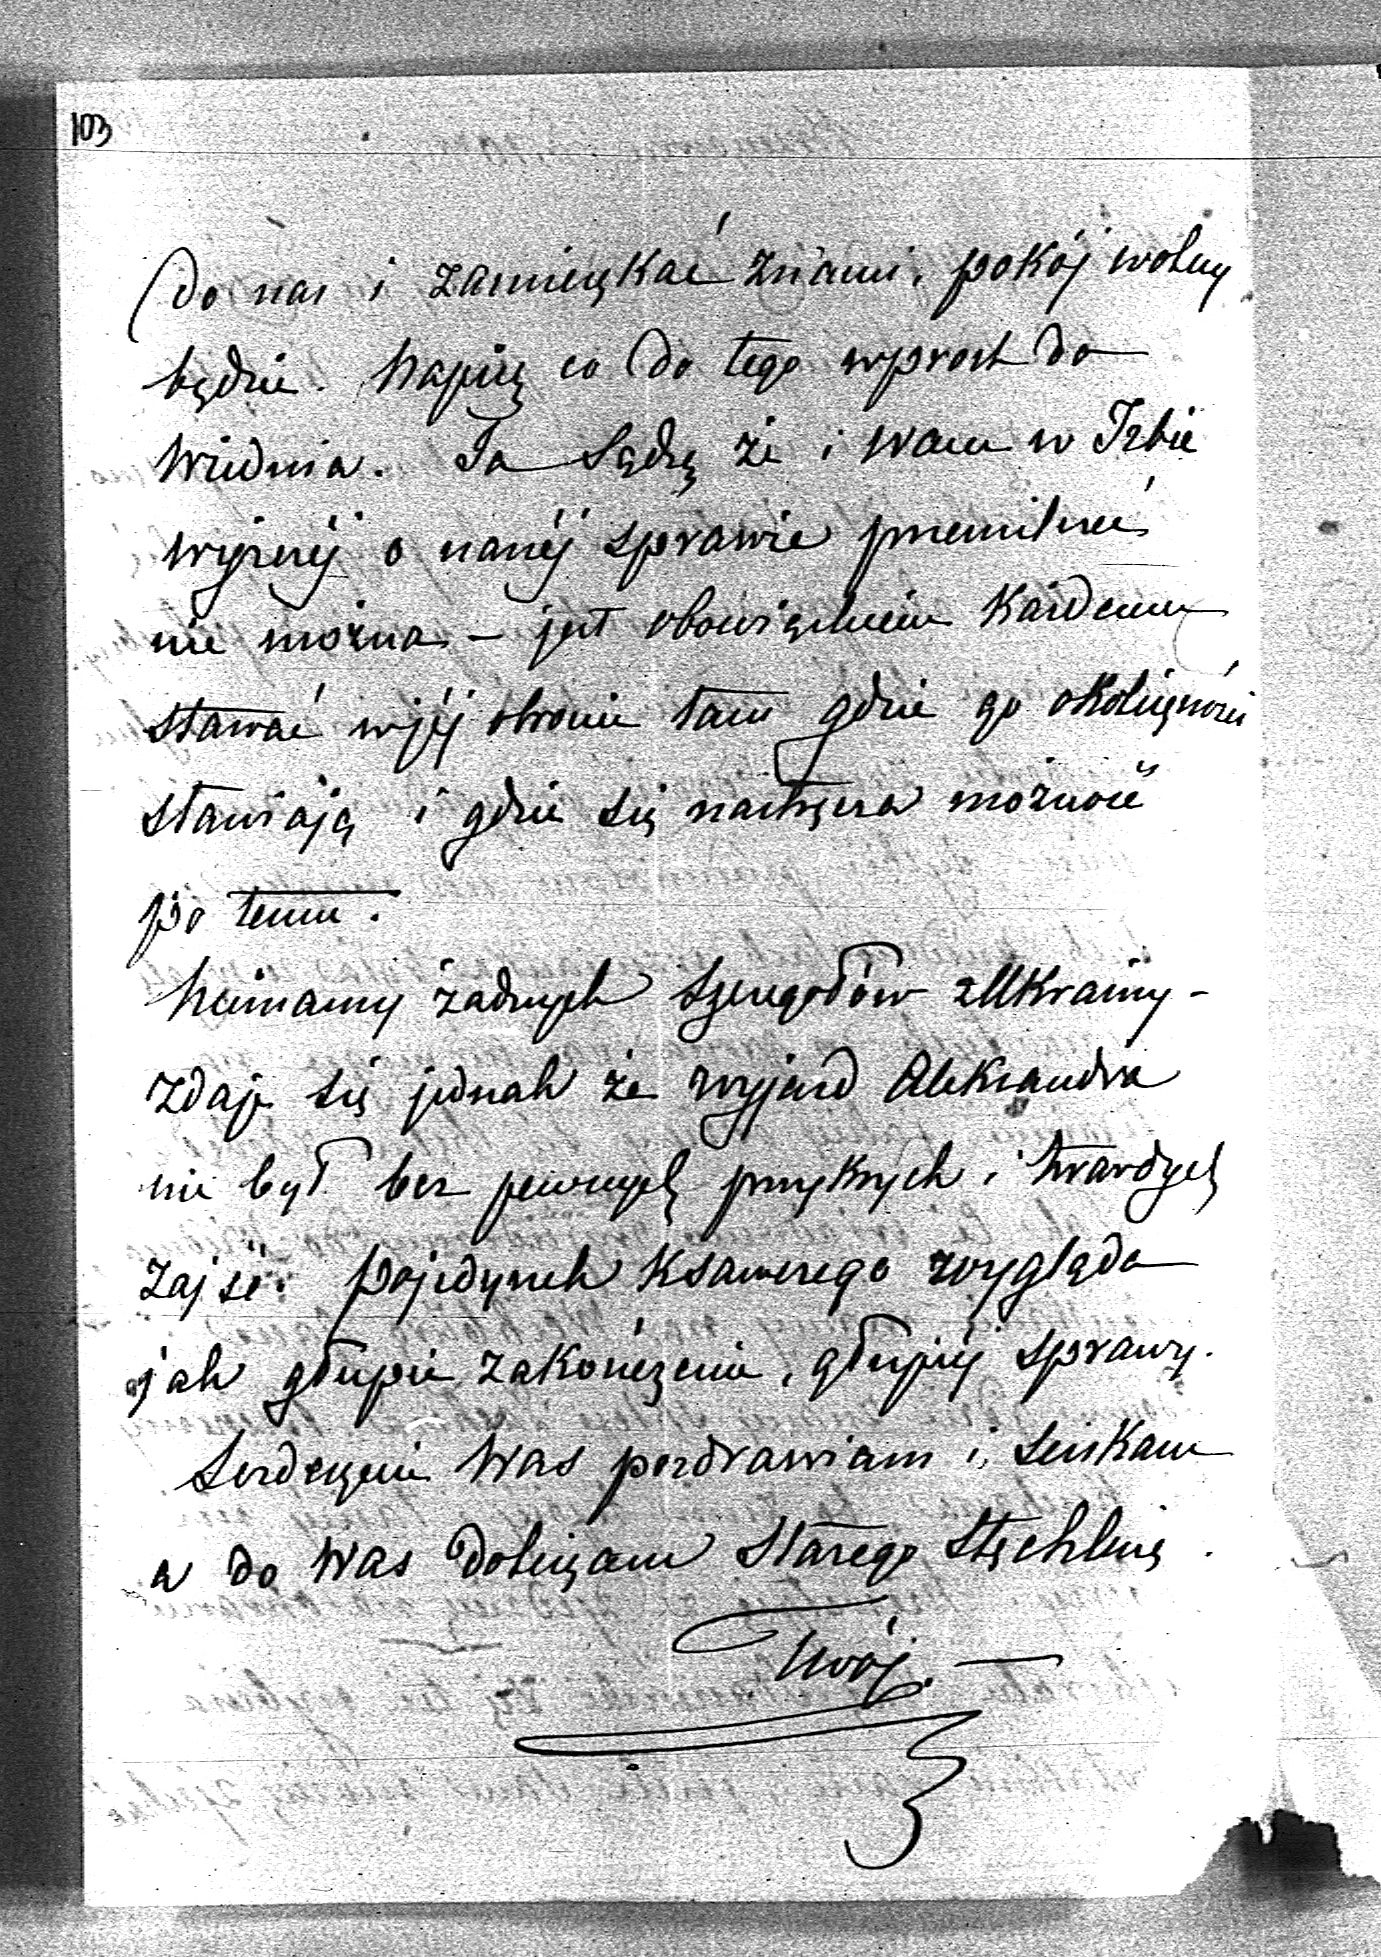 103
do nas i zamieszkać z nami, pokój wolny
będzie. Napiszę co do tego wprost do
Wiednia. Ja sądzę że i wam w Izbie
wyższéj o naszéj sprawie przemilczeć
nie można – jest obowiązkiem każdemu
stawać w jéj obronie tam gdzie go okoliczności
stawiają i gdzie się nastręcza możność
po temu.
Nie mamy żadnych szczegółów z Ukrainy –
zdaje się jednak że wyjazd Aleksandra
nie był bez pewnych przykrych i twardych
zajść. Pojedynek Ksawerego wygląda
jak głupie zakończenie, głupiéj sprawy.
Serdecznie Was pozdrawiam i ściskam
a do Was dołączam starego Stęchlinę.
Twój. —